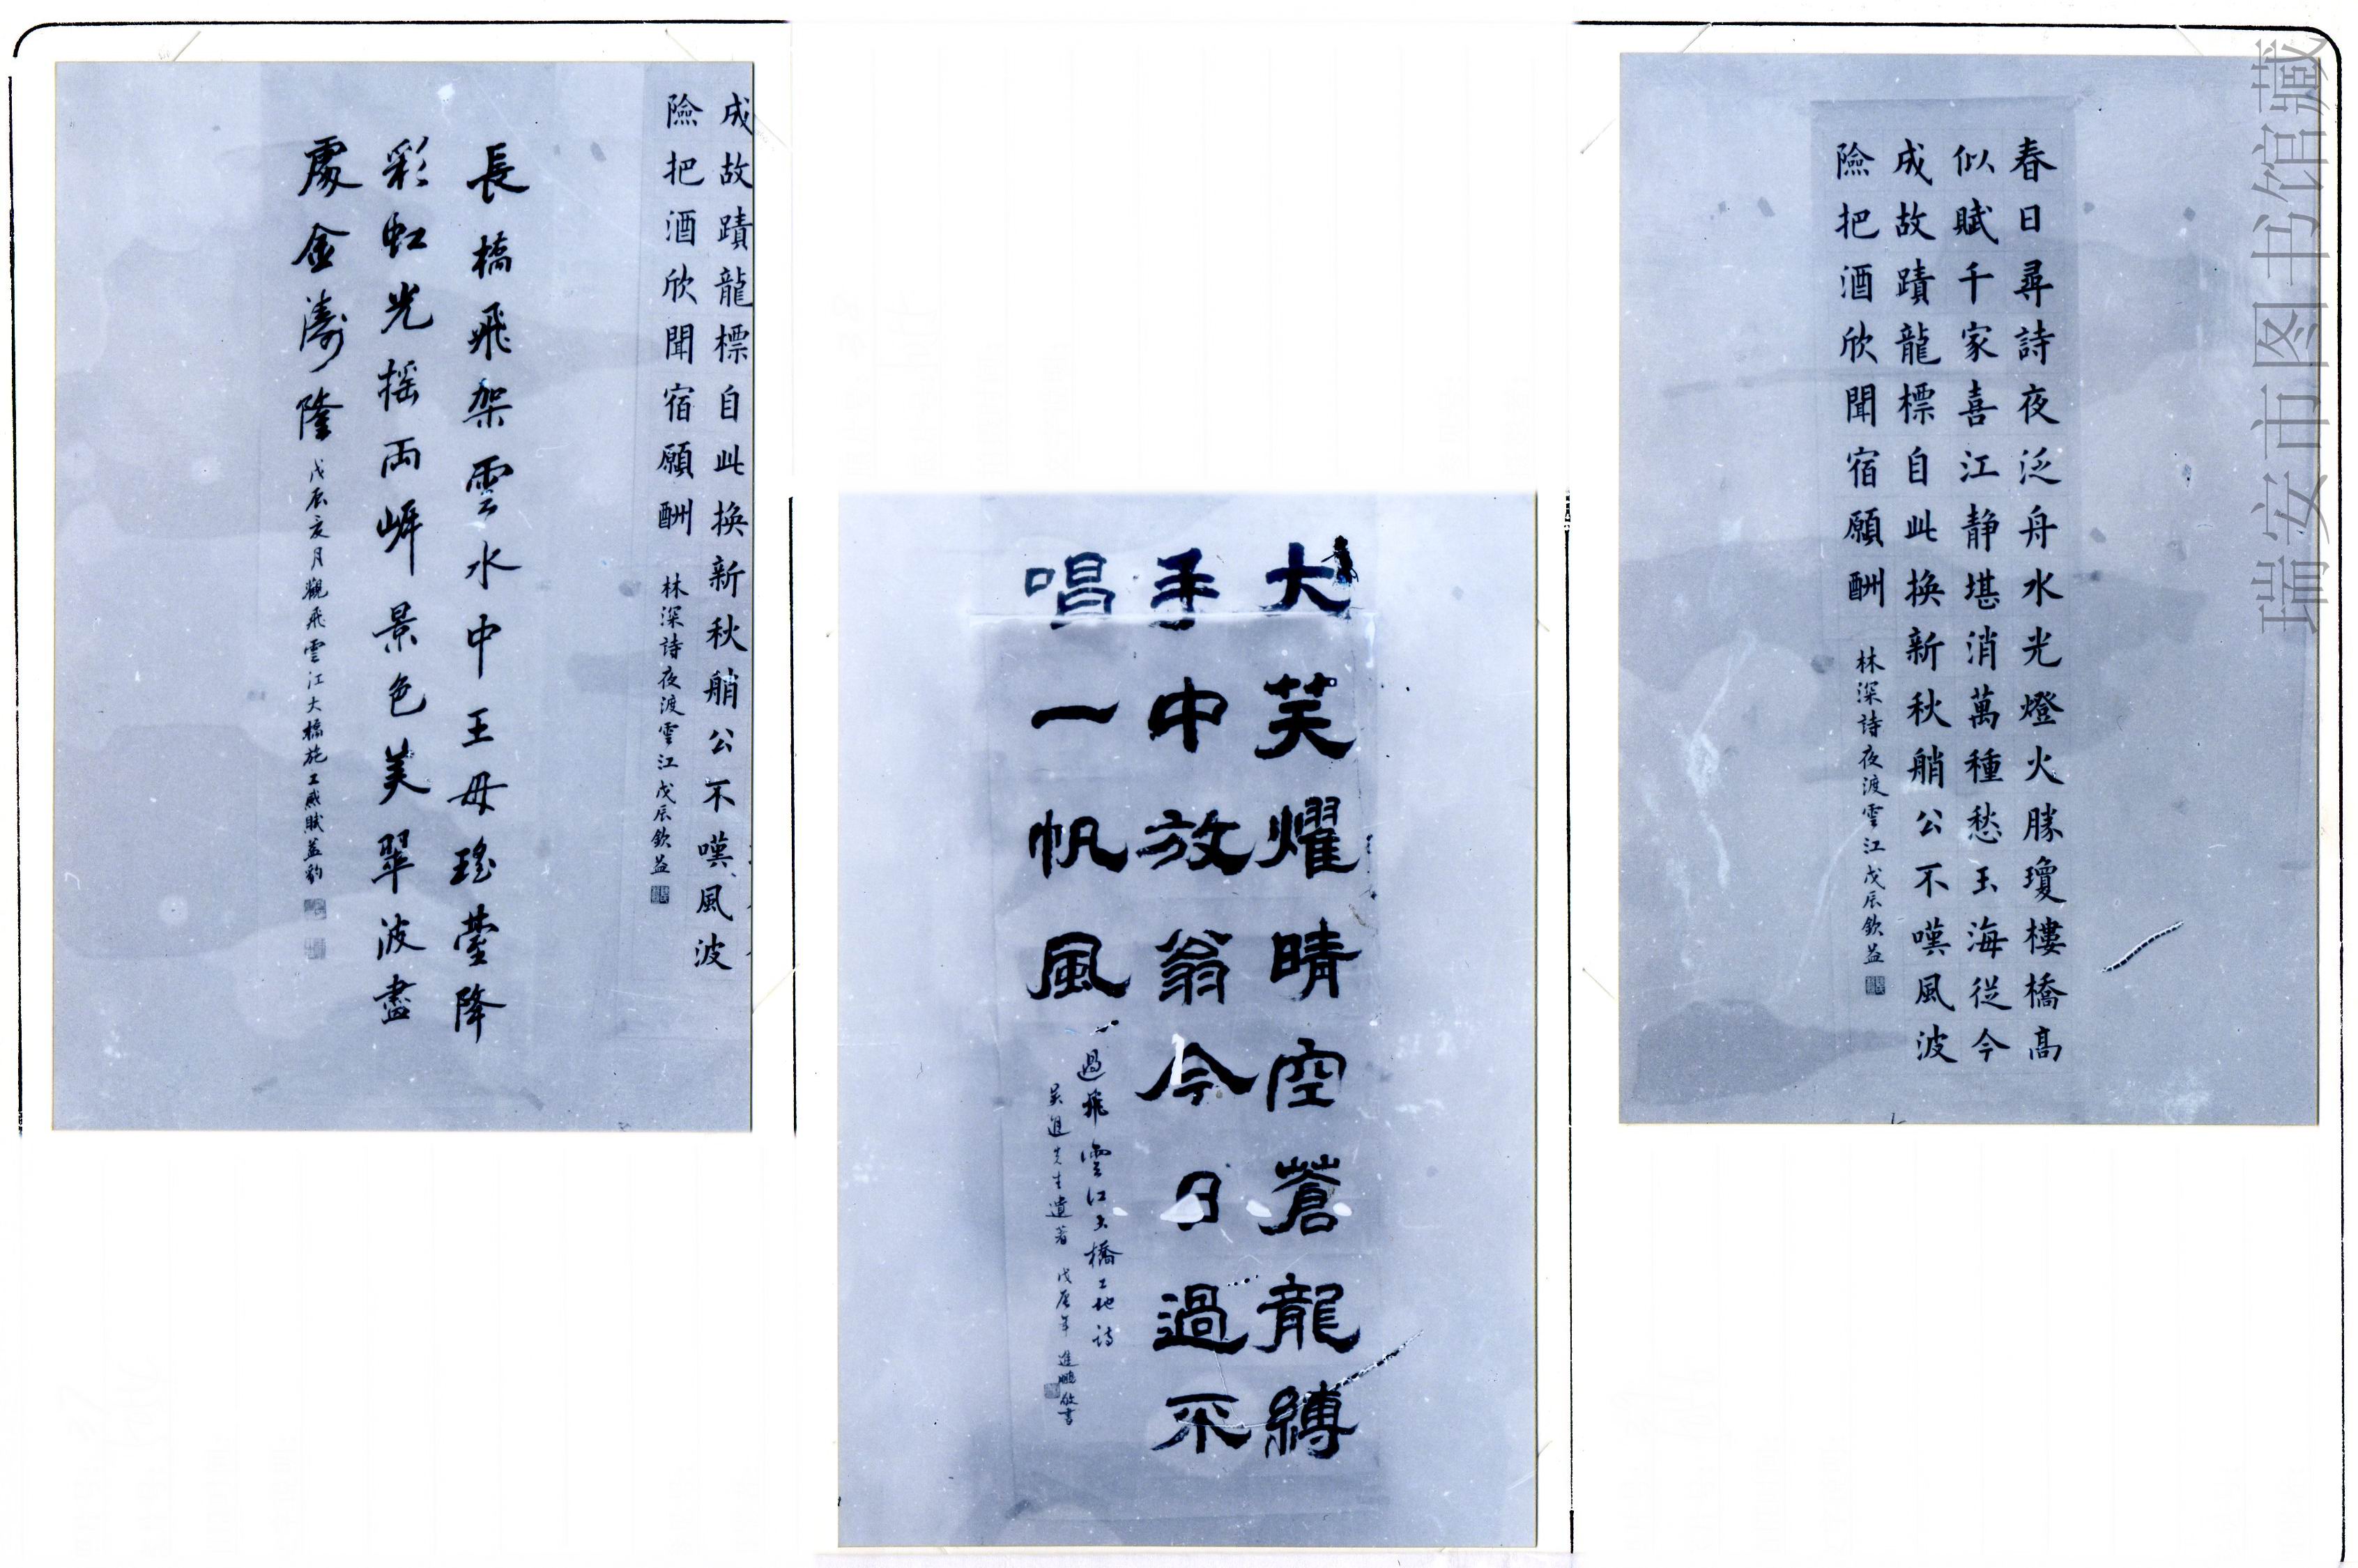 春日尋詩夜泛舟水光燈火勝瓊樓橋高
似賦千家喜江静堪消萬種愁玉海從今
成故蹟龍標自此換新秋艄公不嘆風波
險把酒欣聞宿願酬
林深詩夜渡雲江戊辰欽益
瑞安市图书馆藏
大芙耀晴空蒼龍縛
手中放翁今日過不
唱一帆風
過飛雲江大橋工地詩
吴進先生遺著 戊辰年 進鵬敬書
成故蹟龍標自此換新秋艄公不嘆風波
險把酒欣聞宿願酬
林深詩夜渡雲江戊辰欽益
長橋飛架雲水中王母瑤臺降
彩虹光摇両岸景色美翠波盡
處金濤隆
戊辰亥月觀飛雲江大橋施工感賦益豹